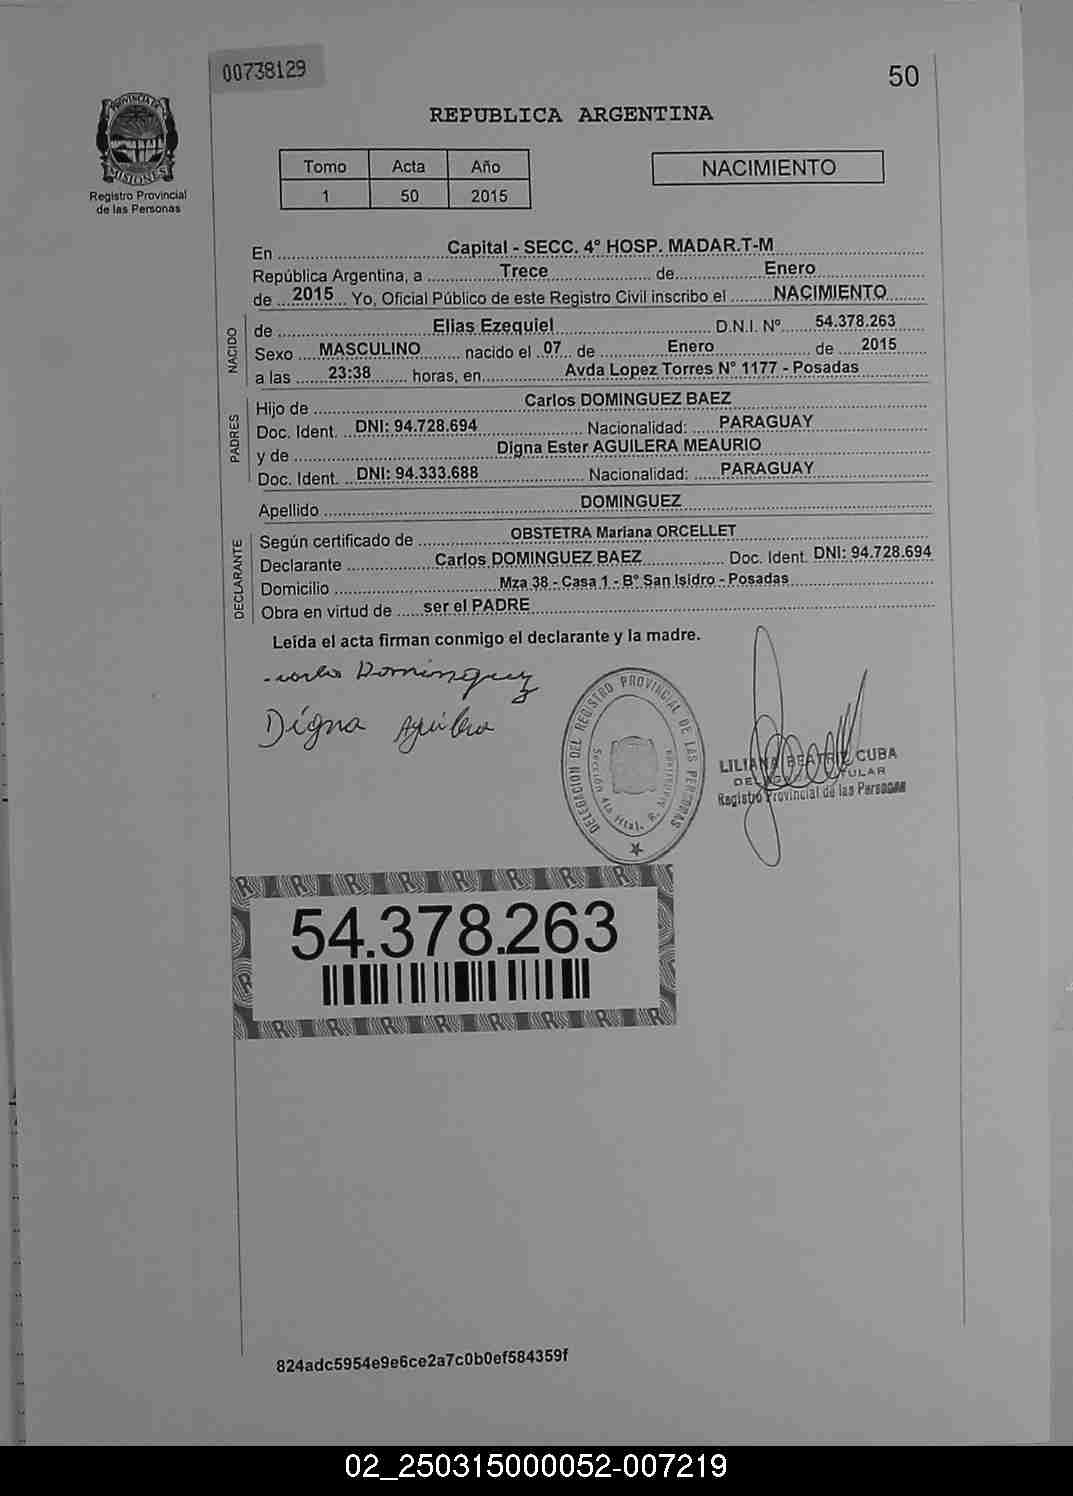 00738129
50
REPUBLICA ARGENTINA
PROVINCIA DE
MISIONES
Registro Provincial
de las Personas
Tomo Acta Año
1 50 2015
NACIMIENTO
En Capital - SECC. 4° HOSP. MADAR.T-M
República Argentina, a Trece de Enero
de 2015 Yo, Oficial Público de este Registro Civil inscribo el NACIMIENTO
NACIDO
de Elias Ezequiel D.N.I. Nº 54.378.263
Sexo MASCULINO nacido el 07 de Enero de 2015
a las 23:38 horas, en Avda Lopez Torres N° 1177 - Posadas
PADRES
Hijo de Carlos DOMINGUEZ BAEZ
Doc. Ident. DNI: 94.728.694 Nacionalidad: PARAGUAY
y de Digna Ester AGUILERA MEAURIO
Doc. Ident. DNI: 94.333.688 Nacionalidad: PARAGUAY
Apellido DOMINGUEZ
DECLARANTE
Según certificado de OBSTETRA Mariana ORCELLET
Declarante Carlos DOMINGUEZ BAEZ Doc. Ident. DNI: 94.728.694
Domicilio Mza 38 - Casa 1 - B° San Isidro - Posadas
Obra en virtud de ser el PADRE
Leída el acta firman conmigo el declarante y la madre.
Dominguez
Digna Aguilera
DELEGACION DEL REGISTRO PROVINCIAL DE LAS PERSONAS
Sección 4ta Htal. R.
LILIANA BEATRIZ CUBA
Registro Provincial de las Personas
54.378.263
824adc5954e9e6ce2a7c0b0ef584359f
02_250315000052-007219